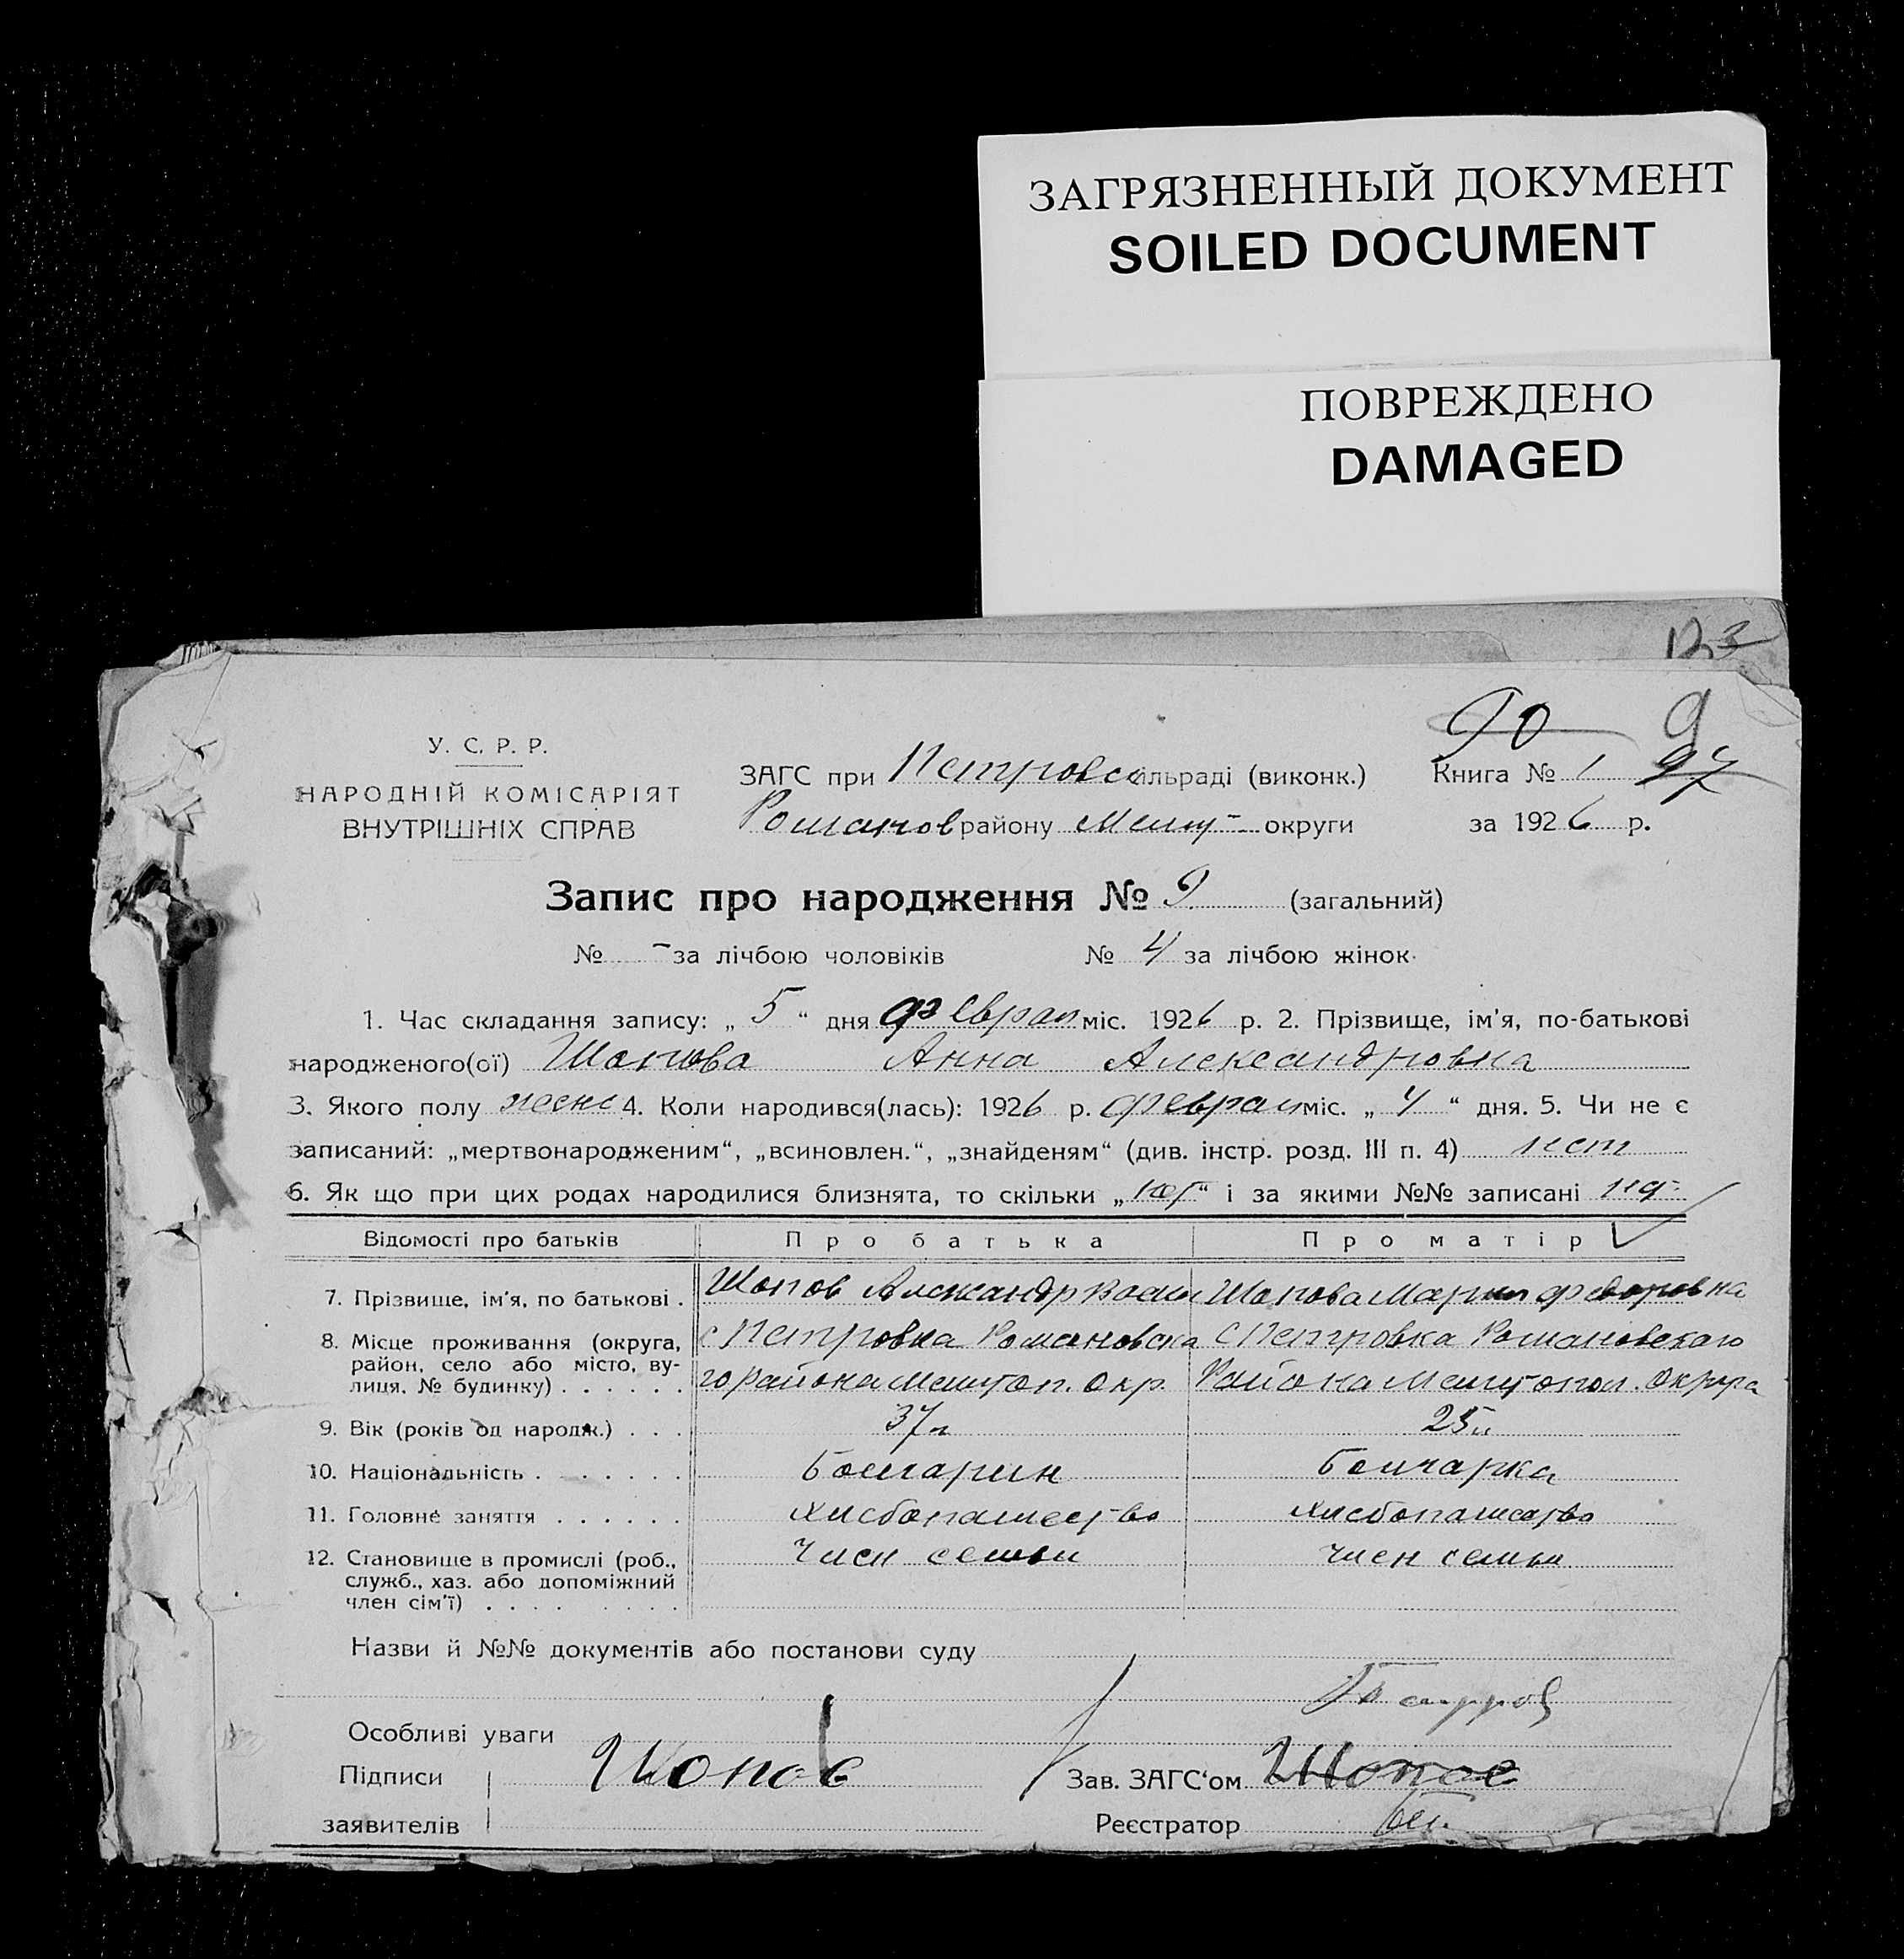 ЗАГРЯЗНЕННЫЙ ДОКУМЕНТ
SOILED DOCUMENT
ПОВРЕЖДЕНО
DAMAGED
90 9
У. С. Р. Р.
НАРОДНІЙ КОМІСАРІЯТ
ВНУТРІШНІХ СПРАВ
ЗАГС при Петровс ільраді (виконк.)
Романов району Мелит- округи
Книга № 1 97
за 1926 р.
Запис про народження № 9. (загальний)
№ - за лічбою чоловіків № 4 за лічбою жінок.
1. Час складання запису: „ 5 “ дня феврал міс. 1926 р. 2. Прізвище, ім'я, по-батькові
народженого(ої) Шопова Анна Александровна
3. Якого полу женс 4. Коли народився(лась): 1926 р. феврал міс. „ 4 “ дня. 5. Чи не є
записаний: „мертвонародженим“, „всиновлен.“, „знайденям“ (див. інстр. розд. III п. 4) нет
6. Як що при цих родах народилися близнята, то скільки „ нет “ і за якими №№ записані
Відомості про батьків Про батька Про матір
7. Прізвище, ім'я, по батькові . Шопов Александр Васил Шопова Мария Федоровна
8. Місце проживання (округа, с Петровка Романовска с Петровка Романовскаго
район, село або місто, ву-
лиця, № будинку) . . . . . . го района Мелитоп. окр. Района Мелитопол. округа
9. Вік (років од народж.) . . . 37 л 25 л
10. Національність . . . . . . . Болгарин Болгарка
11. Головне заняття . . . . . . Хлебопашество Хлебопашество
12. Становище в промислі (роб., член семьи член семьи
служб., хаз. або допоміжний
член сім'ї) . . . . . . . .
Назви й №№ документів або постанови суду
Особливі уваги
Підписи Шопов Зав. ЗАГС'ом Шопов
заявителів Реєстратор